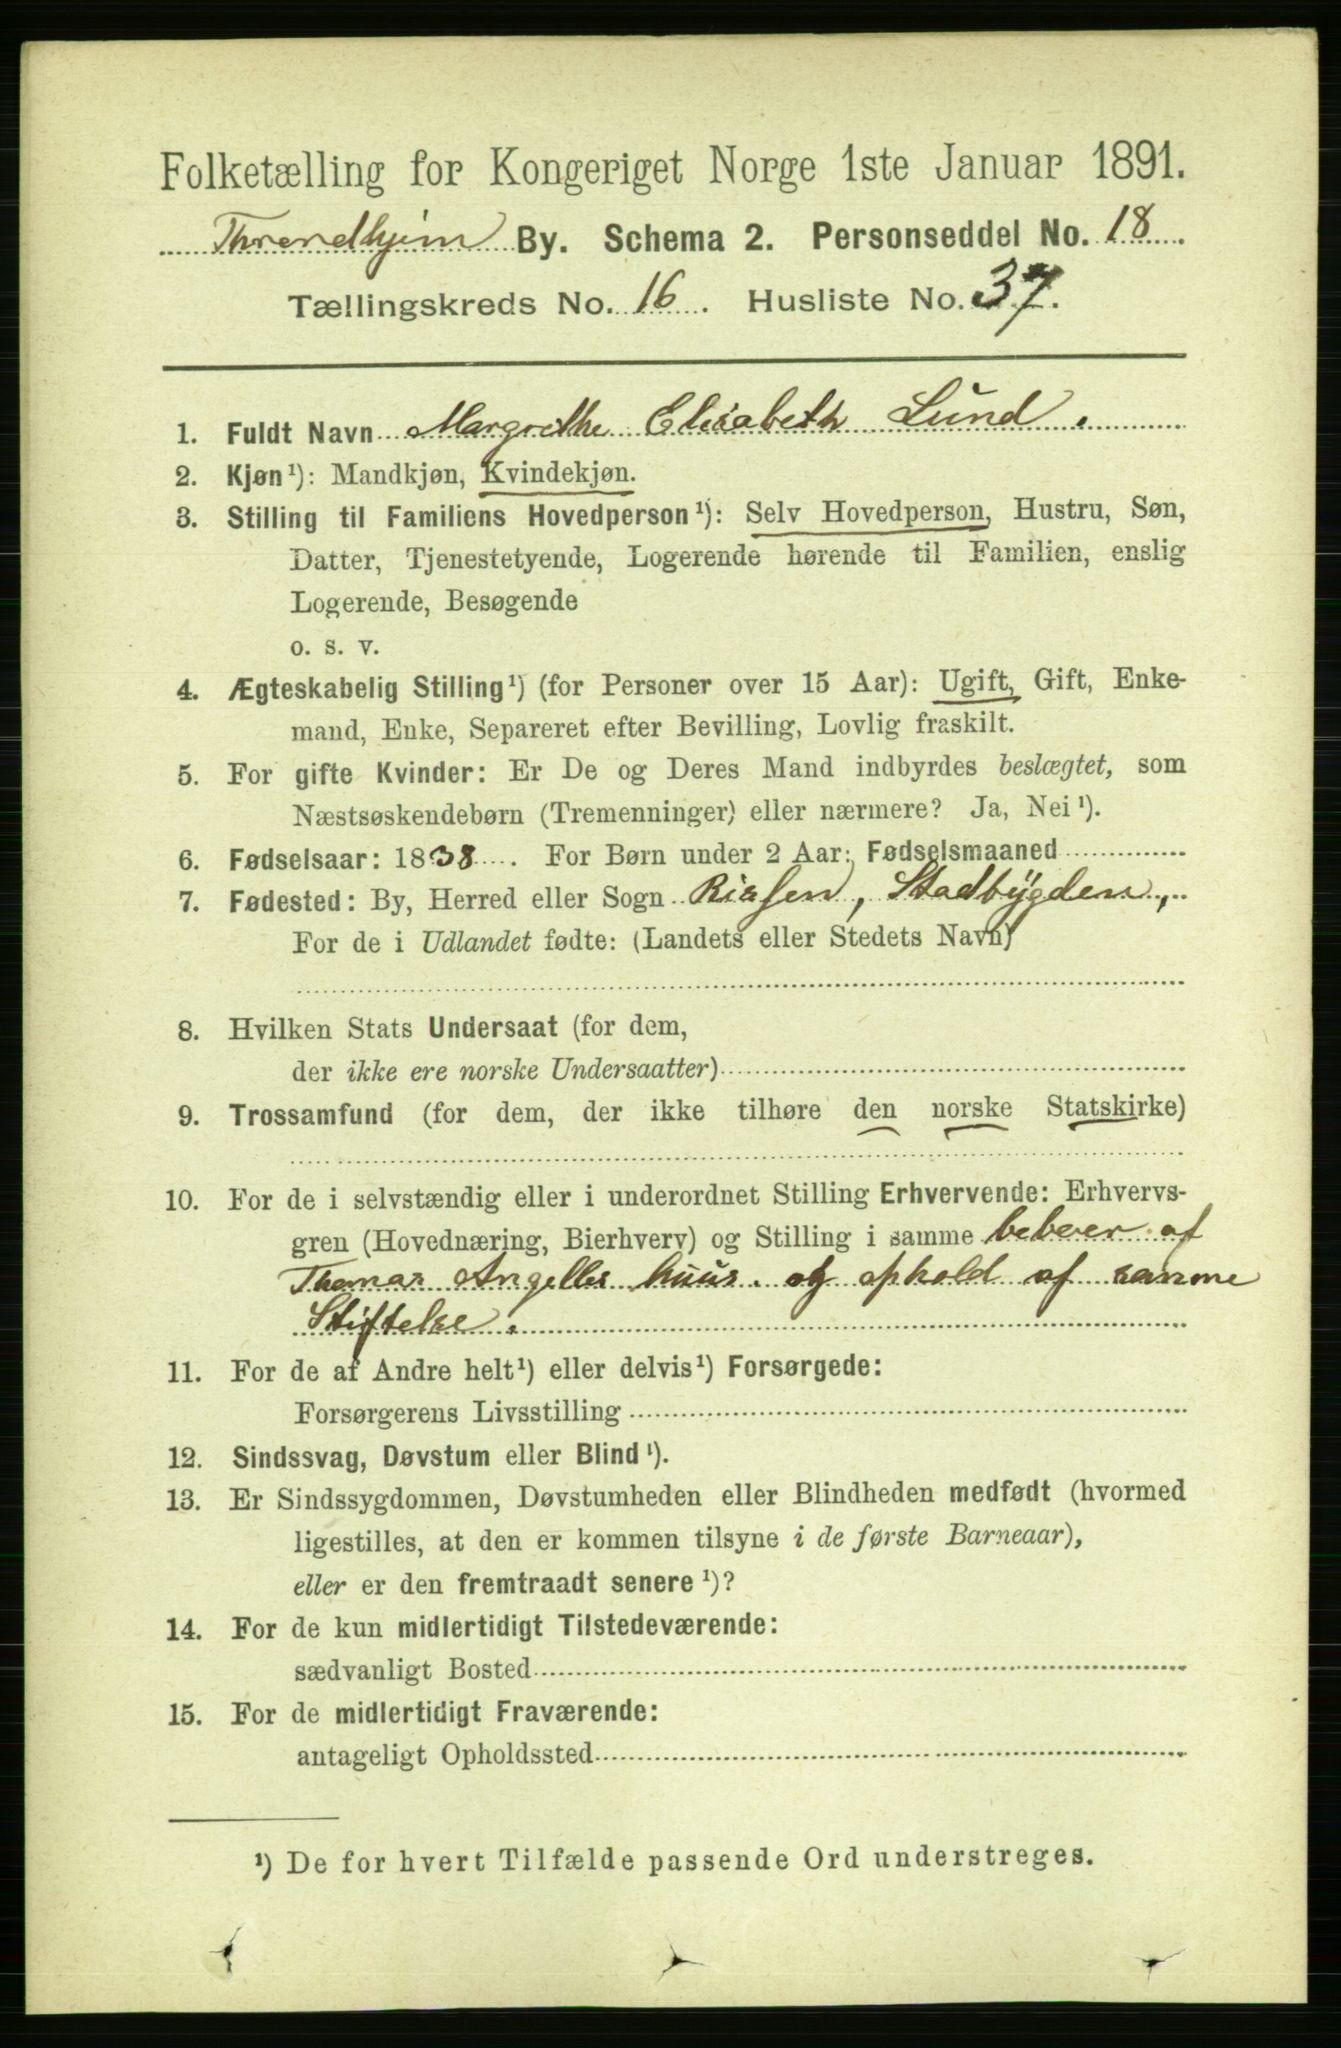 Folketælling for Kongeriget Norge 1ste Januar 1891.
Throndhjem By. Schema 2. Personseddel No. 18
Tællingskreds No. 16. Husliste No. 37.
1. Fuldt Navn Margrethe Elisabeth Lund.
2. Kjøn¹): Mandkjøn, Kvindekjøn.
3. Stilling til Familiens Hovedperson¹): Selv Hovedperson, Hustru, Søn,
Datter, Tjenestetyende, Logerende hørende til Familien, enslig
Logerende, Besøgende
o. s. v.
4. Ægteskabelig Stilling¹) (for Personer over 15 Aar): Ugift, Gift, Enke-
mand, Enke, Separeret efter Bevilling, Lovlig fraskilt.
5. For gifte Kvinder: Er De og Deres Mand indbyrdes beslægtet, som
Næstsøskendebørn (Tremenninger) eller nærmere? Ja, Nei¹).
6. Fødselsaar: 1838. For Børn under 2 Aar: Fødselsmaaned
7. Fødested: By, Herred eller Sogn Rissen, Stadbygden,
For de i Udlandet fødte: (Landets eller Stedets Navn)
8. Hvilken Stats Undersaat (for dem,
der ikke ere norske Undersaatter)
9. Trossamfund (for dem, der ikke tilhøre den norske Statskirke)
10. For de i selvstændig eller i underordnet Stilling Erhvervende: Erhvervs-
gren (Hovednæring, Bierhverv) og Stilling i samme beboer af
Thomas Angelles huus. og ophold af samme
Stiftelse.
11. For de af Andre helt¹) eller delvis¹) Forsørgede:
Forsørgerens Livsstilling
12. Sindssvag, Døvstum eller Blind¹).
13. Er Sindssygdommen, Døvstumheden eller Blindheden medfødt (hvormed
ligestilles, at den er kommen tilsyne i de første Barneaar),
eller er den fremtraadt senere¹)?
14. For de kun midlertidigt Tilstedeværende:
sædvanligt Bosted
15. For de midlertidigt Fraværende:
antageligt Opholdssted
¹) De for hvert Tilfælde passende Ord understreges.